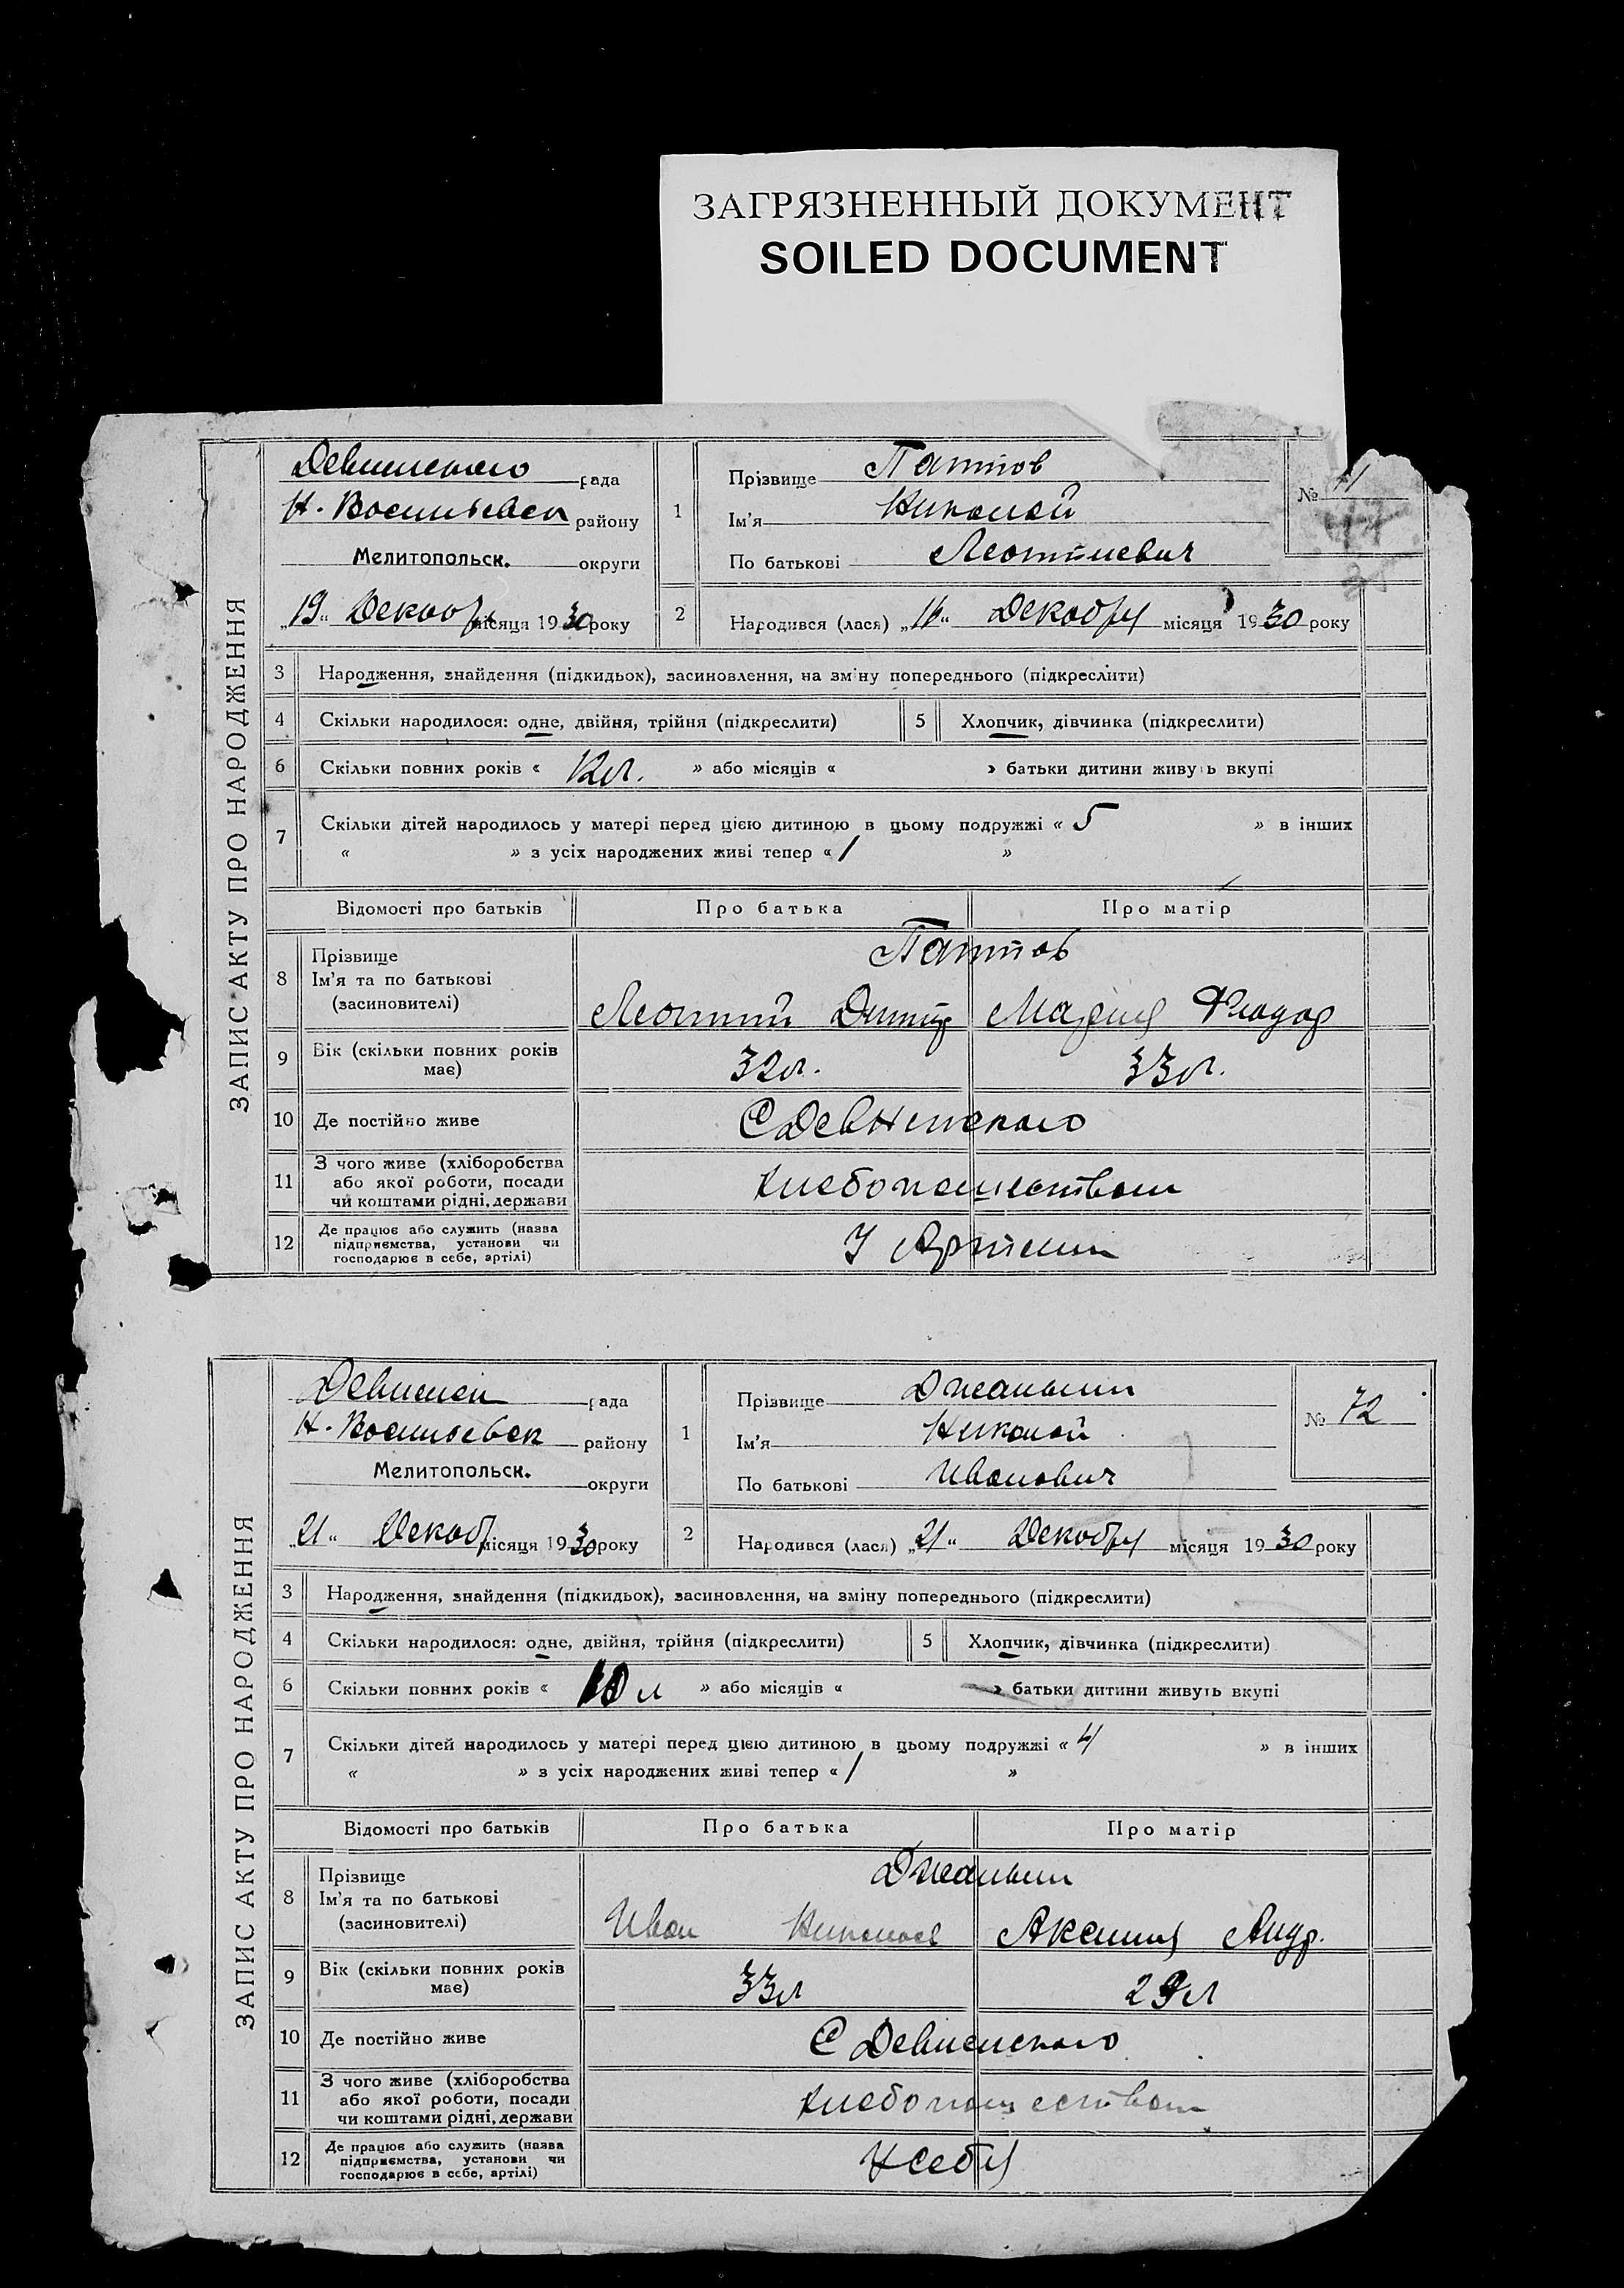 ЗАГРЯЗНЕННЫЙ ДОКУМЕНТ
SOILED DOCUMENT
ЗАПИС АКТУ ПРО НАРОДЖЕННЯ
Девнинского рада
Н. Васильевск району
Мелитопольск. округи
„19“ Декабр місяця 1930 року
1
Прізвище Паттов
Ім'я Николай
По батькові Леоттиевич
№ 71
2
Народився (лася) „16“ Декабря місяця 1930 року
3 Народження, знайдення (підкидьок), засиновлення, на зміну попереднього (підкреслити)
4 Скільки народилося: одне, двійня, трійня (підкреслити) 5 Хлопчик, дівчинка (підкреслити)
6 Скільки повних років « 12л. » або місяців « » батьки дитини живуть вкупі
7 Скільки дітей народилось у матері перед цією дитиною в цьому подружжі « 5 » в інших
« » з усіх народжених живі тепер « 1 »
Відомості про батьків Про батька Про матір
8 Прізвище
Ім'я та по батькові
(засиновителі)
Паттов
Леоттий Дмитр Мария Феодор
9 Вік (скільки повних років
має)
32л. 33л.
10 Де постійно живе С Девнинского
11 З чого живе (хліборобства
або якої роботи, посади
чи коштами рідні, держави
Хлебопашеством
12 Де працює або служить (назва
підприємства, установи чи
господарює в себе, артілі)
У Артели
ЗАПИС АКТУ ПРО НАРОДЖЕННЯ
Девнинск рада
Н. Васильевск району
Мелитопольск. округи
„21“ Декаб місяця 1930 року
1
Прізвище
Ім'я Николай
По батькові Иванович
№ 72
2
Народився (лася) „21“ Декабря місяця 1930 року
3 Народження, знайдення (підкидьок), засиновлення, на зміну попереднього (підкреслити)
4 Скільки народилося: одне, двійня, трійня (підкреслити) 5 Хлопчик, дівчинка (підкреслити)
6 Скільки повних років « 10 л » або місяців « » батьки дитини живуть вкупі
7 Скільки дітей народилось у матері перед цією дитиною в цьому подружжі « 4 » в інших
« » з усіх народжених живі тепер « 1 »
Відомості про батьків Про батька Про матір
8 Прізвище
Ім'я та по батькові
(засиновителі)
Иван Николаев Аксиния Андр.
9 Вік (скільки повних років
має)
33л 29л
10 Де постійно живе С Девнинского
11 З чого живе (хліборобства
або якої роботи, посади
чи коштами рідні, держави
Хлебопашеством
12 Де працює або служить (назва
підприємства, установи чи
господарює в себе, артілі)
У себя